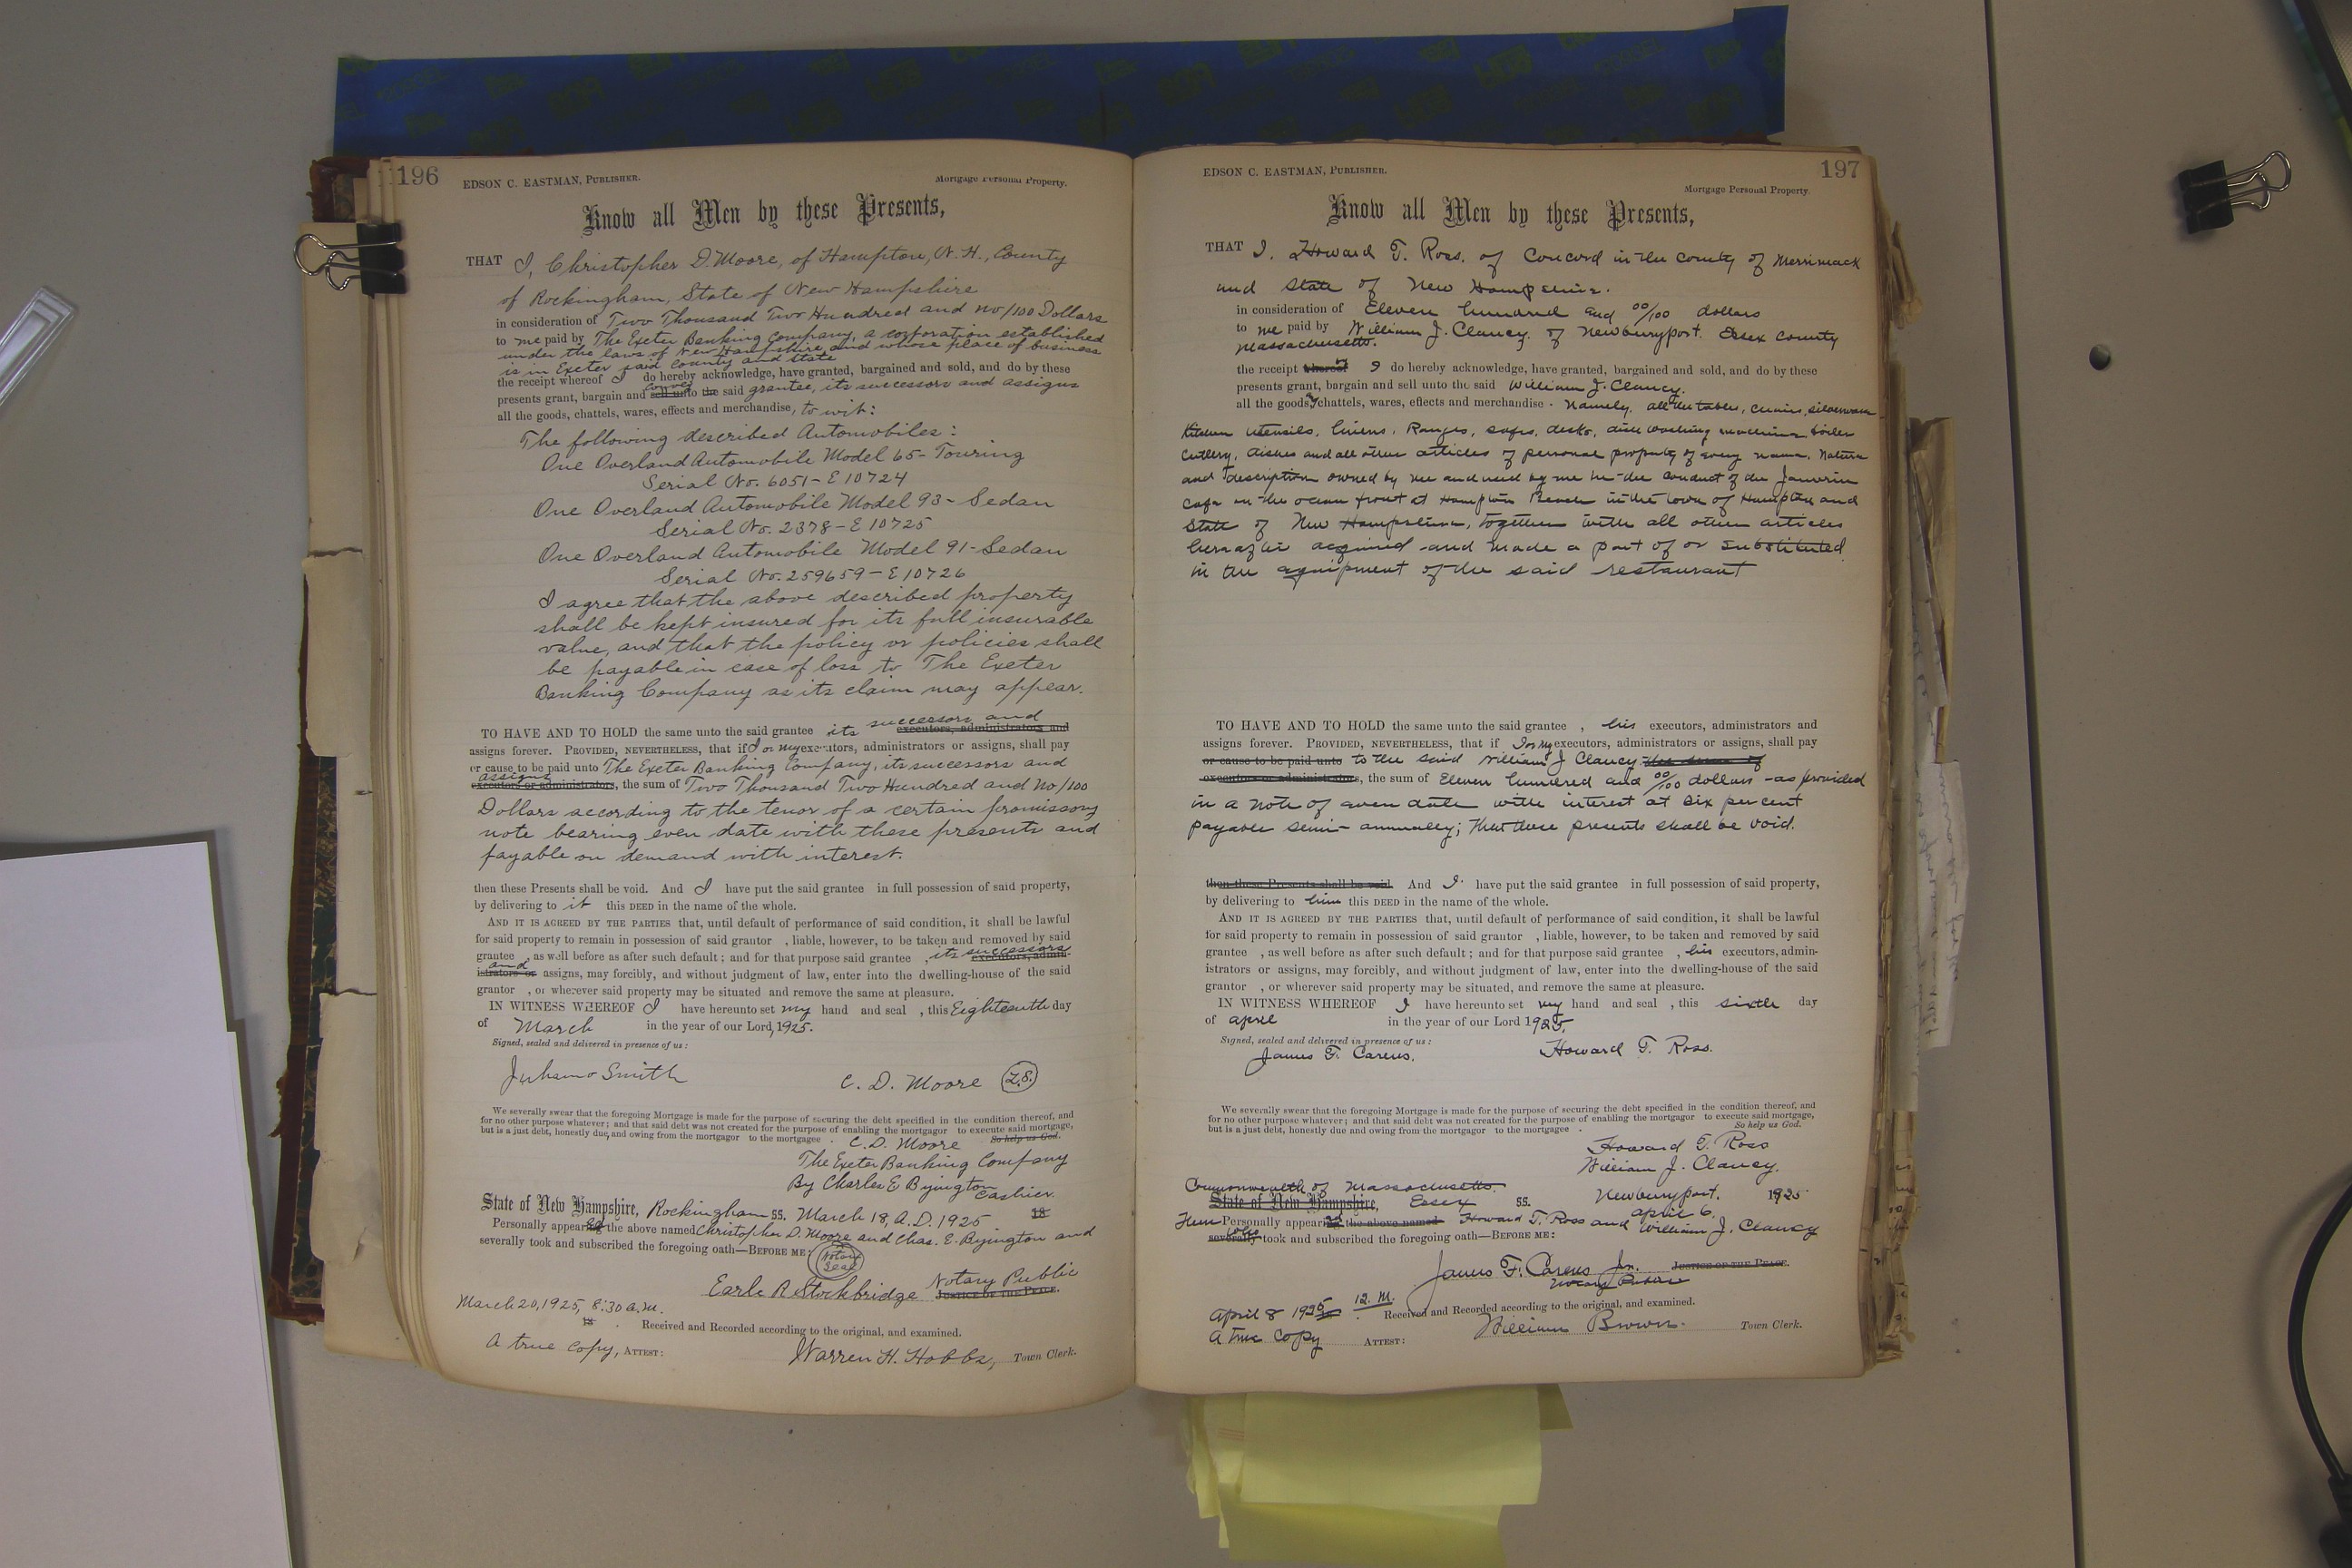 196
EDSON C. EASTMAN, PUBLISHER.
Mortgage Personal Property.
Know all Men by these Presents,
THAT I, Christopher D. Moore, of Hampton, N.H., County
of Rockingham, State of New Hampshire
in consideration of Two Thousand Two Hundred and no/100 Dollars
to me paid by The Exeter Banking Company, a corporation established
under the laws of New Hampshire and whose place of business
is in Exeter said County and State
the receipt whereof I do hereby acknowledge, have granted, bargained and sold, and do by these
presents grant, bargain and sell unto convey the said grantee, its successors and assigns
all the goods, chattels, wares, effects and merchandise, to wit:
The following described Automobiles:
One Overland Automobile Model 65- Touring
Serial No. 6051- E 10724
One Overland Automobile Model 93- Sedan
Serial No. 2378- E 10725
One Overland Automobile Model 91- Sedan
Serial No. 259659- E 10726
I agree that the above described property
shall be kept insured for its full insurable
value, and that the policy or policies shall
be payable in case of loss to The Exeter
Banking Company as its claim may appear.
TO HAVE AND TO HOLD the same unto the said grantee its successors and executors, administrators and
assigns forever. PROVIDED, NEVERTHELESS, that if I or my executors, administrators or assigns, shall pay
or cause to be paid unto The Exeter Banking Company, its successors and
assigns executors or administrators, the sum of Two Thousand Two Hundred and no/100
Dollars according to the tenor of a certain promissory
note bearing even date with these presents and
payable on demand with interest.
then these Presents shall be void. And I have put the said grantee in full possession of said property,
by delivering to it this DEED in the name of the whole.
AND IT IS AGREED BY THE PARTIES that, until default of performance of said condition, it shall be lawful
for said property to remain in possession of said grantor , liable, however, to be taken and removed by said
grantee , as well before as after such default; and for that purpose said grantee , its successors executors, admin-
istrators or and assigns, may forcibly, and without judgment of law, enter into the dwelling-house of the said
grantor , or wherever said property may be situated and remove the same at pleasure.
IN WITNESS WHEREOF I have hereunto set my hand and seal , this Eighteenth day
of March in the year of our Lord, 1925.
Signed, sealed and delivered in presence of us:
Smith
C. D. Moore L.S.
We severally swear that the foregoing Mortgage is made for the purpose of securing the debt specified in the condition thereof, and
for no other purpose whatever; and that said debt was not created for the purpose of enabling the mortgagor to execute said mortgage,
but is a just debt, honestly due, and owing from the mortgagor to the mortgagee . So help us God.
C. D. Moore
The Exeter Banking Company
By Charles E Byington Cashier.
State of New Hampshire, Rockingham SS. March 18, A.D. 1925 18
Personally appeared the above named Christopher D. Moore and Chas. E. Byington and
severally took and subscribed the foregoing oath—BEFORE ME:
Notary Seal
Earle R. Stockbridge Notary Public
JUSTICE OF THE PEACE.
March 20, 1925, 8:30 a.m.
18 . Received and Recorded according to the original, and examined.
A true copy, ATTEST: Warren H. Hobbs, Town Clerk.
197
EDSON C. EASTMAN, PUBLISHER.
Mortgage Personal Property.
Know all Men by these Presents,
THAT I, Howard T. Ross, of Concord in the county of Merrimack
and State of New Hampshire.
in consideration of Eleven hundred and 00/100 dollars
to me paid by William J. Clancy, of Newburyport, Essex County
Massachusetts.
the receipt whereof I do hereby acknowledge, have granted, bargained and sold, and do by these
presents grant, bargain and sell unto the said William J. Clancy.
all the goods, chattels, wares, effects and merchandise - Namely, all the tables, chairs, silverware
Kitchen utensils, linens, Ranges, safes, desks, dish washing machine boiler
cutlery, dishes and all other articles of personal property of every name, nature
and description owned by me and used by me in the conduct of the Janvrin
Cafe on the ocean front at Hampton Beach in the town of Hampton and
State of New Hampshire, together with all other articles
hereafter acquired and made a part of or substituted
in the equipment of the said restaurant
TO HAVE AND TO HOLD the same unto the said grantee , his executors, administrators and
assigns forever. PROVIDED, NEVERTHELESS, that if I or my executors, administrators or assigns, shall pay
or cause to be paid unto to the said William J Clancy the sum of
executors or administrators, the sum of Eleven hundred and 00/100 dollars - as provided
in a note of even date with interest at six per cent
payable semi-annually; then these presents shall be void.
then these Presents shall be void. And I have put the said grantee in full possession of said property,
by delivering to him this DEED in the name of the whole.
AND IT IS AGREED BY THE PARTIES that, until default of performance of said condition, it shall be lawful
for said property to remain in possession of said grantor , liable, however, to be taken and removed by said
grantee , as well before as after such default; and for that purpose said grantee , his executors, admin-
istrators or assigns, may forcibly, and without judgment of law, enter into the dwelling-house of the said
grantor , or wherever said property may be situated, and remove the same at pleasure.
IN WITNESS WHEREOF I have hereunto set my hand and seal , this sixth day
of april in the year of our Lord 1925.
Signed, sealed and delivered in presence of us:
James F. Carens.
Howard T. Ross.
We severally swear that the foregoing Mortgage is made for the purpose of securing the debt specified in the condition thereof, and
for no other purpose whatever; and that said debt was not created for the purpose of enabling the mortgagor to execute said mortgage,
but is a just debt, honestly due and owing from the mortgagor to the mortgagee . So help us God.
Howard T. Ross
William J. Clancy.
Commonwealth of Massachusetts.
State of New Hampshire, Essex SS. Newburyport, april 6, 1925
Then Personally appeared the above named Howard T. Ross and William J. Clancy
severally took and subscribed the foregoing oath—BEFORE ME:
James F. Carens Jr. JUSTICE OF THE PEACE.
Notary Public
April 8 1925 12. M. Received and Recorded according to the original, and examined.
A true Copy ATTEST: William Brown. Town Clerk.